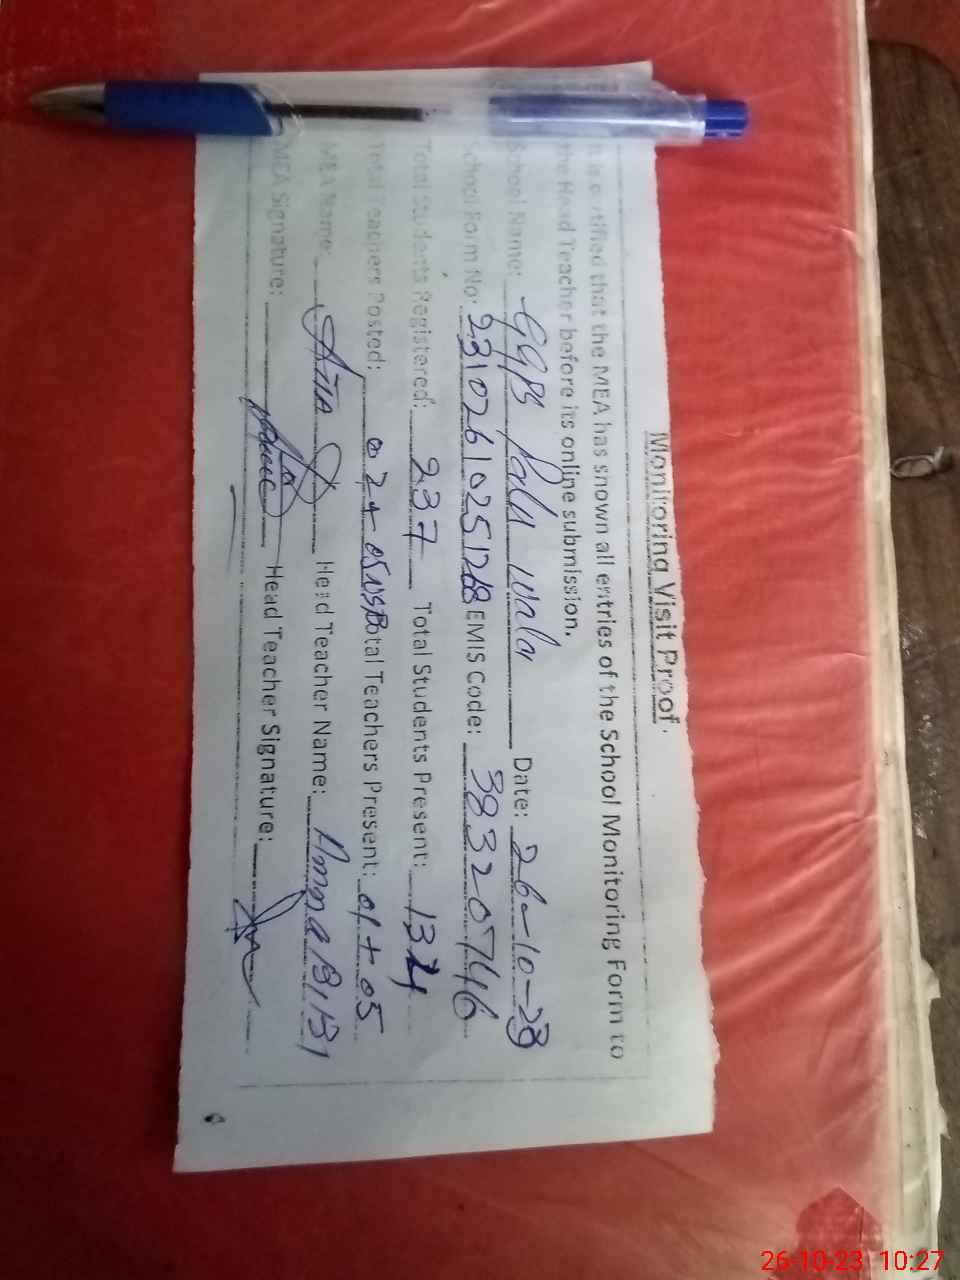 Monitoring Visit Proof.
It is certified that the MEA has shown all entries of the School Monitoring Form to
the Head Teacher before its online submission.
School Name: GGPS Wala Date: 26-10-23
School Form No: EMIS Code: 38320746
Total Students Registered: 237 Total Students Present: 134
Total Teachers Posted: 02+05 NSB Total Teachers Present: 01+05
MEA Name: Head Teacher Name: Amna BiBi
MEA Signature: Head Teacher Signature:
26-10-23 10:27